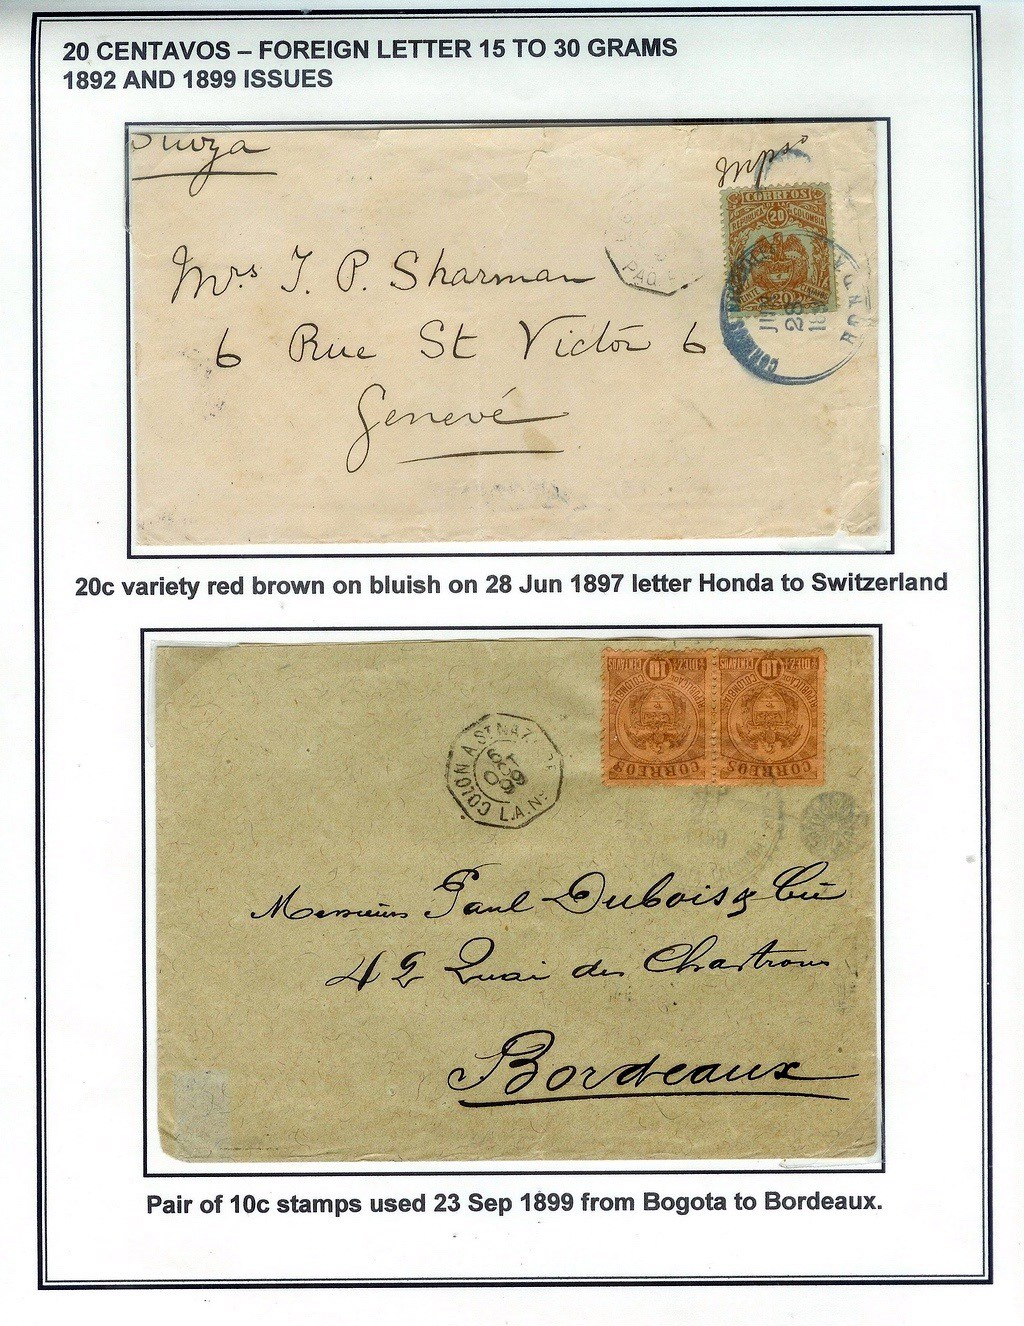 20 CENTAVOS – FOREIGN LETTER 15 TO 30 GRAMS
1892 AND 1899 ISSUES
Suiza
Mrs J. P. Sharman
6 Rue St Victor 6
Genevé
PAQ
CORREOS
REPUBLICA 20 COLOMBIA
20
HONDA
28
20c variety red brown on bluish on 28 Jun 1897 letter Honda to Switzerland
COLON A ST NAZ
6
OCT
99
L.A. No
REPUBLICA DE COLOMBIA
DIEZ 10 CENTAVOS
CORREOS
REPUBLICA DE COLOMBIA
DIEZ 10 CENTAVOS
CORREOS
Messieurs Paul Dubois & Cie
42 Quai des Chartrons
Bordeaux
Pair of 10c stamps used 23 Sep 1899 from Bogota to Bordeaux.